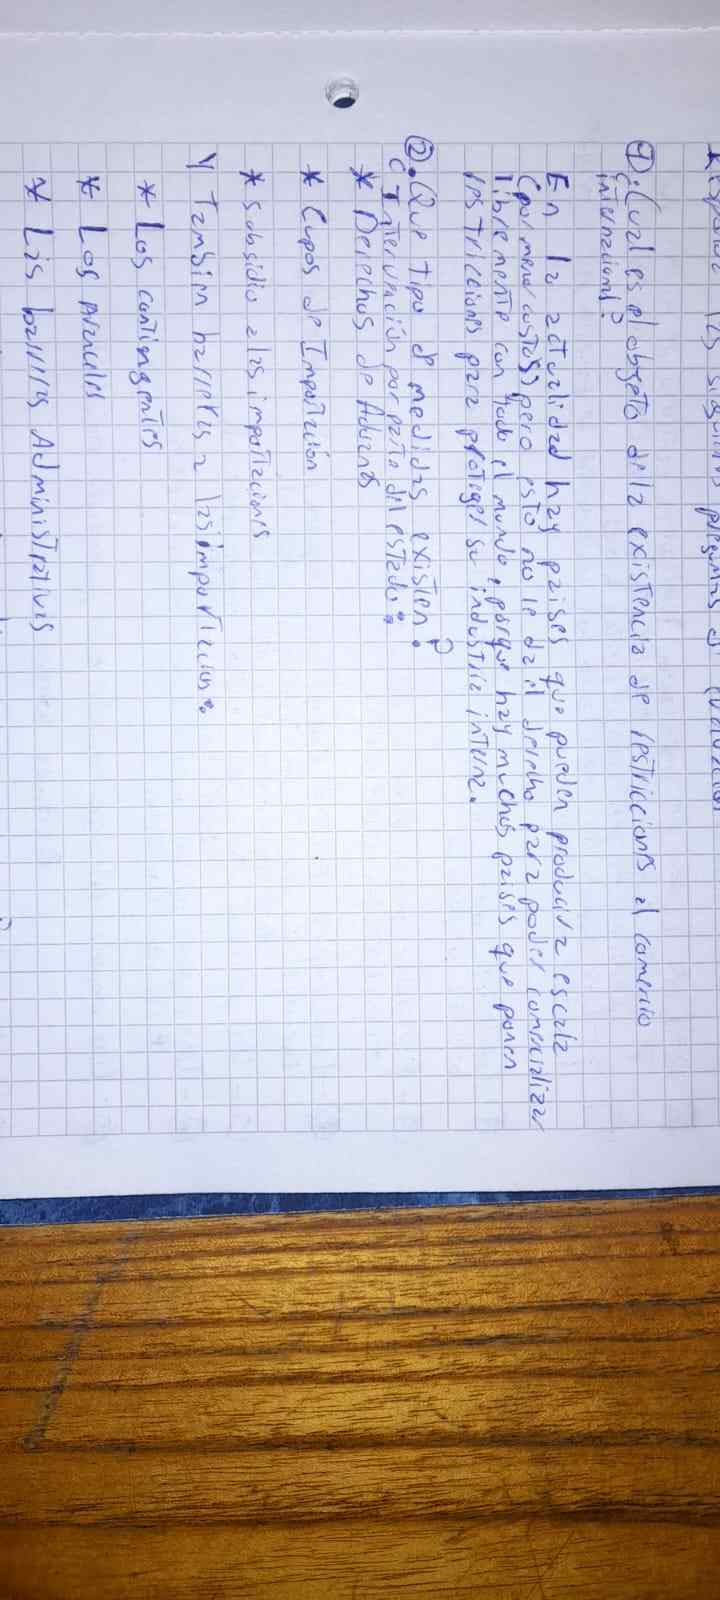 Responde las siguientes preguntas de evaluación
① ¿Cual es el objeto de la existencia de restricciones al comercio
internacional?
En la actualidad hay paises que pueden producir a escala
(por menor costos) pero esto no le da el derecho para poder comercializar
libremente con todo el mundo, porque hay muchos paises que ponen
restricciones para proteger su industria interna.
②. ¿Que tipo de medidas existen?
Intervención por parte del estado:
* Derechos de Aduanas
* Cupos de Importación
* subsidio a las importaciones
Y Tambien barreras a las importaciones:
* Los contingentes
* Los aranceles
* Las barreras Administrativas